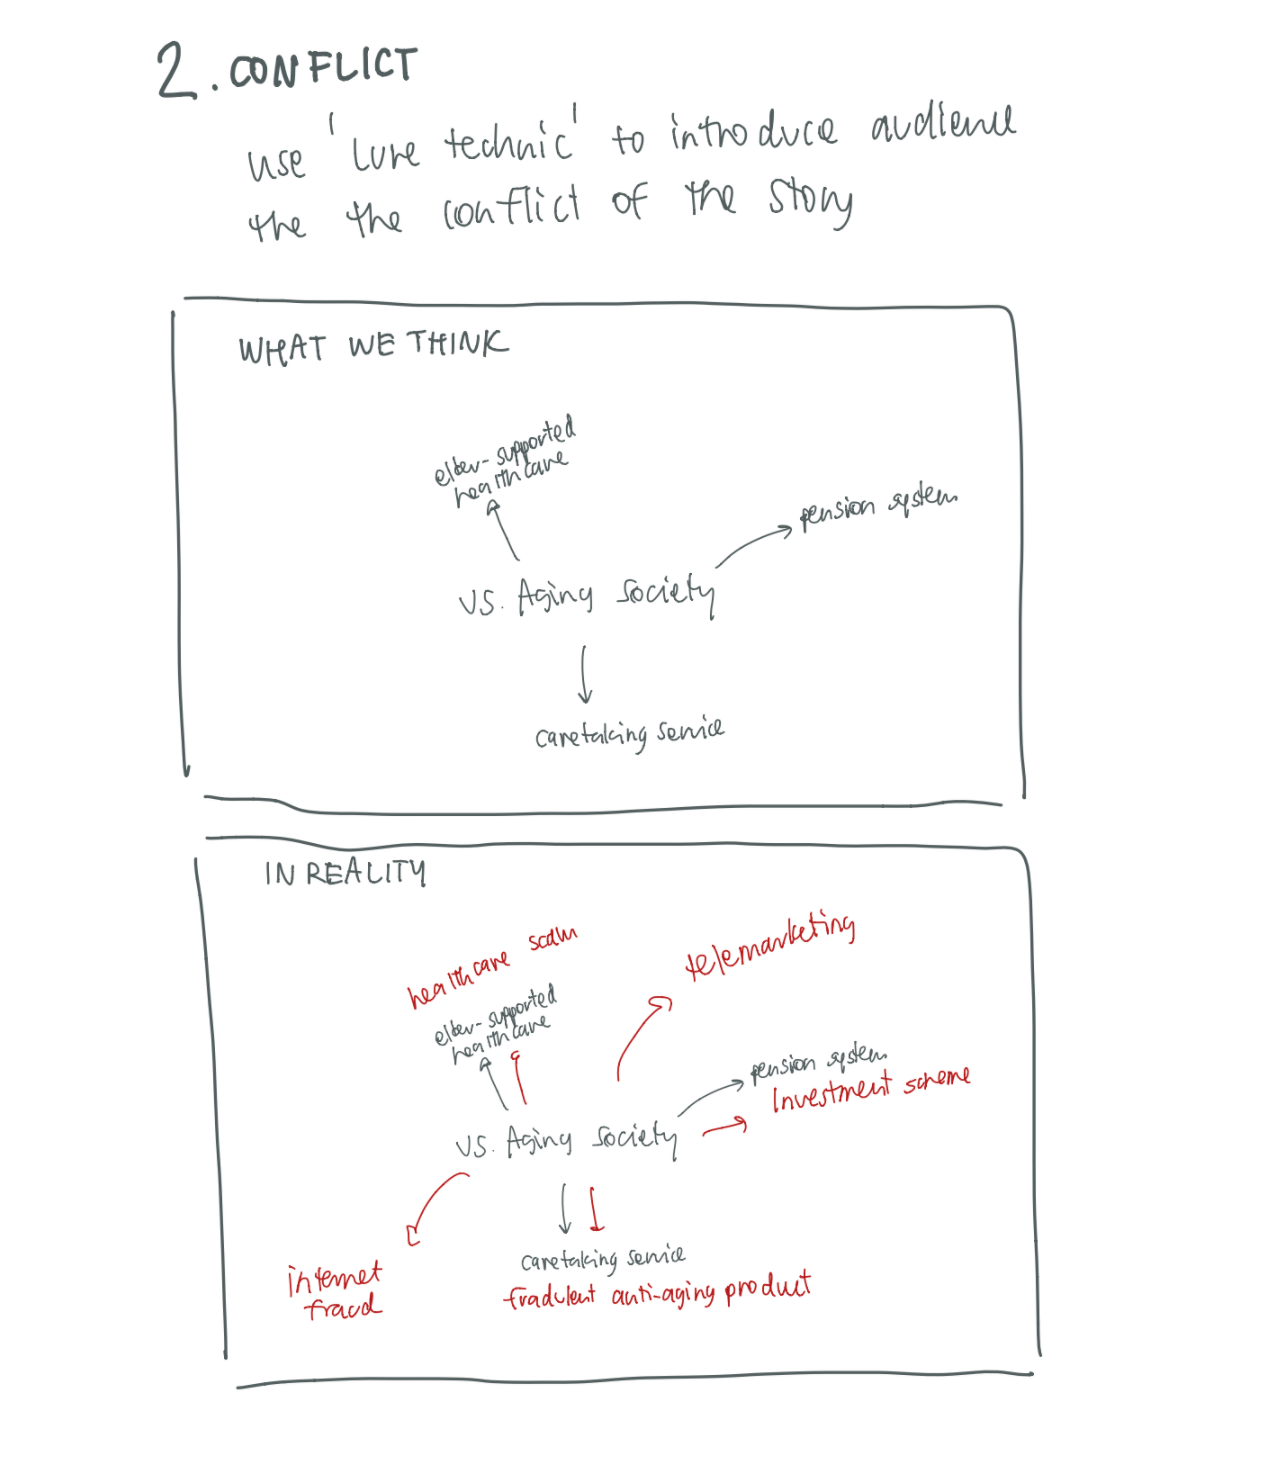 2. CONFLICT
use 'lure technic' to introduce audience
the the conflict of the story
WHAT WE THINK
elder-supported
healthcare
pension system
US. Aging Society
caretaking service
IN REALITY
healthcare scam
telemarketing
elder-supported
healthcare
pension system
Investment scheme
US. Aging Society
caretaking service
internet
fraud
fradulent anti-aging product